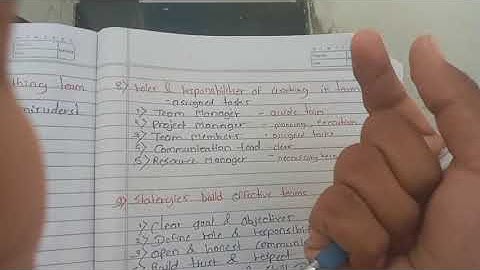 thing team
misunders)
8) roles & responsibilities of working in team
- assigned tasks
1) Team Manager - guide team
2) Project Manager - planning execution
3) Team members - assigned tasks
4) Communication lead - clear
5) Resource Manager - necessary
9) Statergies build effective teams
1) Clear goal & objectives
2) Define role & responsibi
3) Open & honest communic
4) Build trust & respect